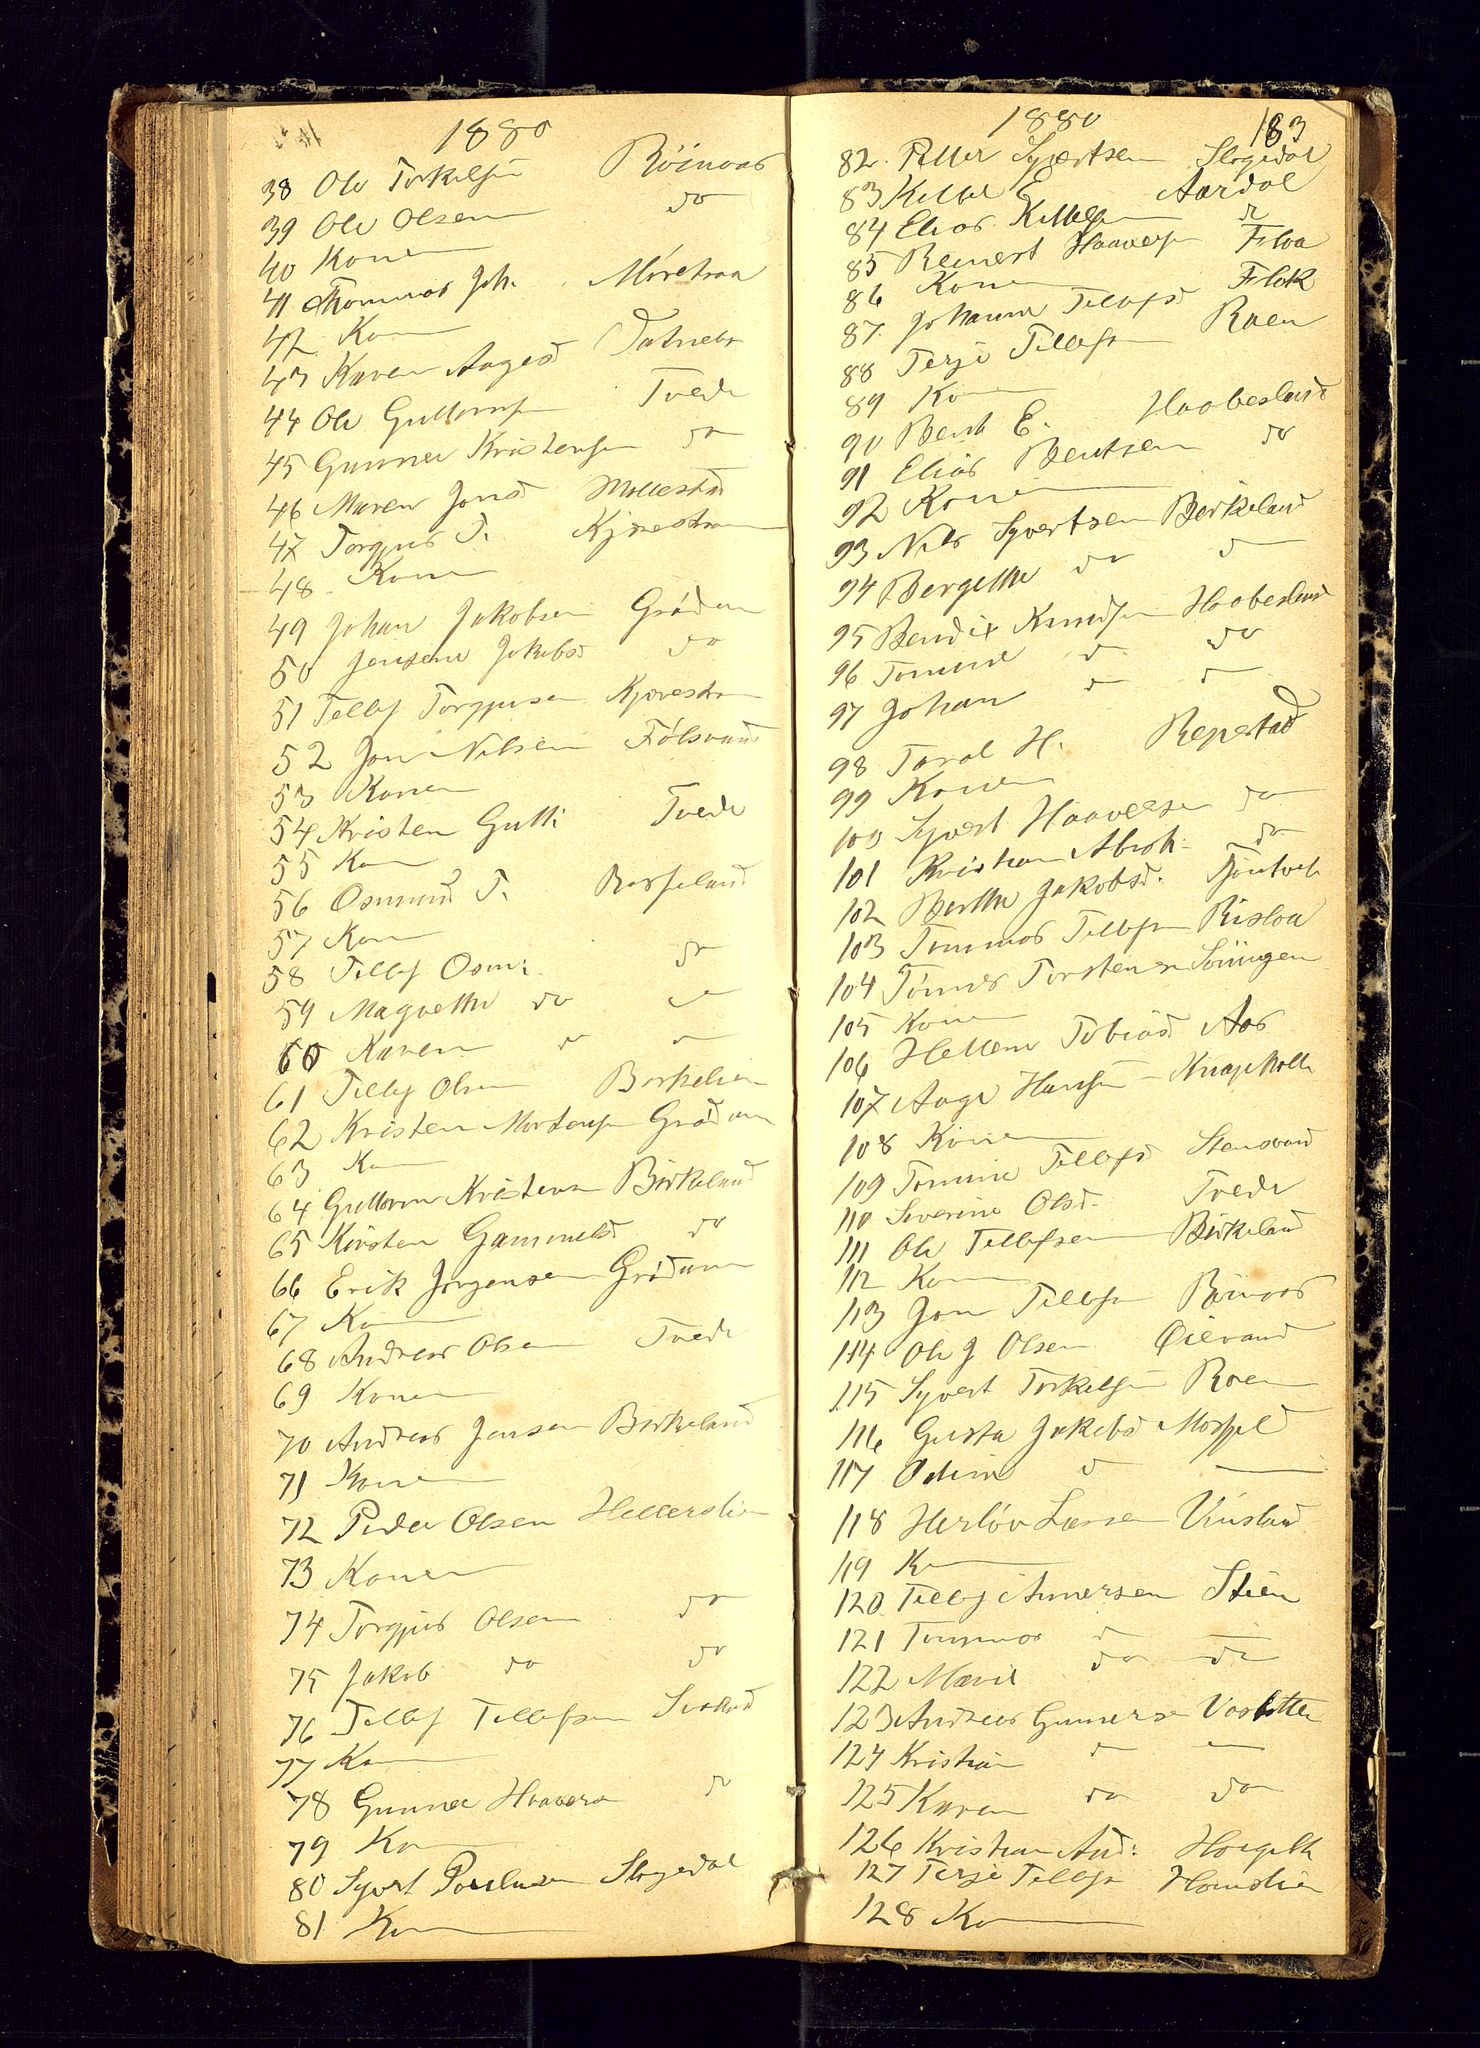 1880
38 Ole Torkelsen Röinaas
39 Ole Olsen do
40 Konen
41 Thommas Joh. Moretraa
42 Kon
43 Karen Aagesd
44 Ole Guttormsen Tvede
45 Gunner Kristensen do
46 Maren Jensd Mollestad
47 Torgjus T. Kjærestrøm
48 Konen
49 Johan Jakobsen Grødum
50 Jensene Jakobsd do
51 Tellef Torgjusen Kjærestrøm
52 Jon Nilsen Følsvand
53 Konen
54 Kristen Gutt: Tvede
55 Kon
56 Osmund T. Birkeland
57 Kon
58 Tellef Osm: do
59 Magrethe do do
60 Karen do do
61 Tellef Olsen Birkelien
62 Kristen Mortensen Grødum
63 Kon
64 Guttorm Kristensen Birkeland
65 Kirsten Gammelsd do
66 Erik Jørgensen Grødum
67 Kon
68 Andreas Olsen Tvede
69 Konen
70 Andreas Jensen Birkeland
71 Konen
72 Peder Olsen Hellerslien
73 Konen
74 Torgjus Olsen do
75 Jakob do do
76 Tellef Tellefsen
77 Kon
78 Gunner Haaversen do
79 Kon
80 Syvert Poulusen Slogedal
81 Kon
1880 183
82. Petter Syvertsen Slogedal
83 Kittel E. Aardal
84 Elias Kittelsen do
85 Reinert Haaversen Flaa
86 Konen Flak
87. Johanne Tellefsd
88 Terje Tellefsen Raen
89 Kon
90 Bent E. Haabesland
91 Elias Bentsen do
92 Konen
93 Nils Syvertsen Birkeland
94 Bergithe do do
95 Bendix Knudsen Haabesland
96 Tomine do do
97 Johan do do
98 Taral H. Repstad
99 Konen
100 Syvert Haaversen do
101 Kristian Abrah. do
102 Berthe Jakobsd.
103 Tommas Tellefsen Rislaa
104 Tønnes Torstensen
105 Konen
106 Hellene Tobiasd Aas
107 Aage Hansen Knapholte
108 Konen
109 Tomine Tellefsd Stensvand
110 Severine Olsd. Tvede
111 Ole Tellefsen Birkeland
112 Kon
113 Jon Tellefsen Röinaas
114 Ole J Olsen Øievand
115 Syvert Torkelsen Raen
116 Gusta Jakobsd Mosfjel
117 do
118 Herløv Larsen Vinsland
119 Kon
120 Tellef Annersen Stien
121 Tommas do
122 Marit do do
123 Andreas Gunnersen
124 Kristian do
125 Karen do do
126 Kristian And:
127 Terje Tellefsen
128 Kon